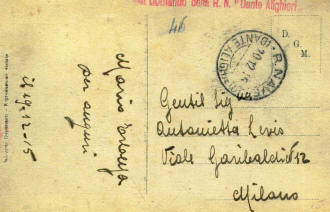 Il Comando della R. N. "Dante Alighieri"
46
D.
G.
M.
R. NAVE
(DANTE ALIGHIERI)
20.12.15
Mario
per auguri
li 19-12-15
Gentil Sig
Antonietta Levis
Viale Garibaldi N 12
Milano